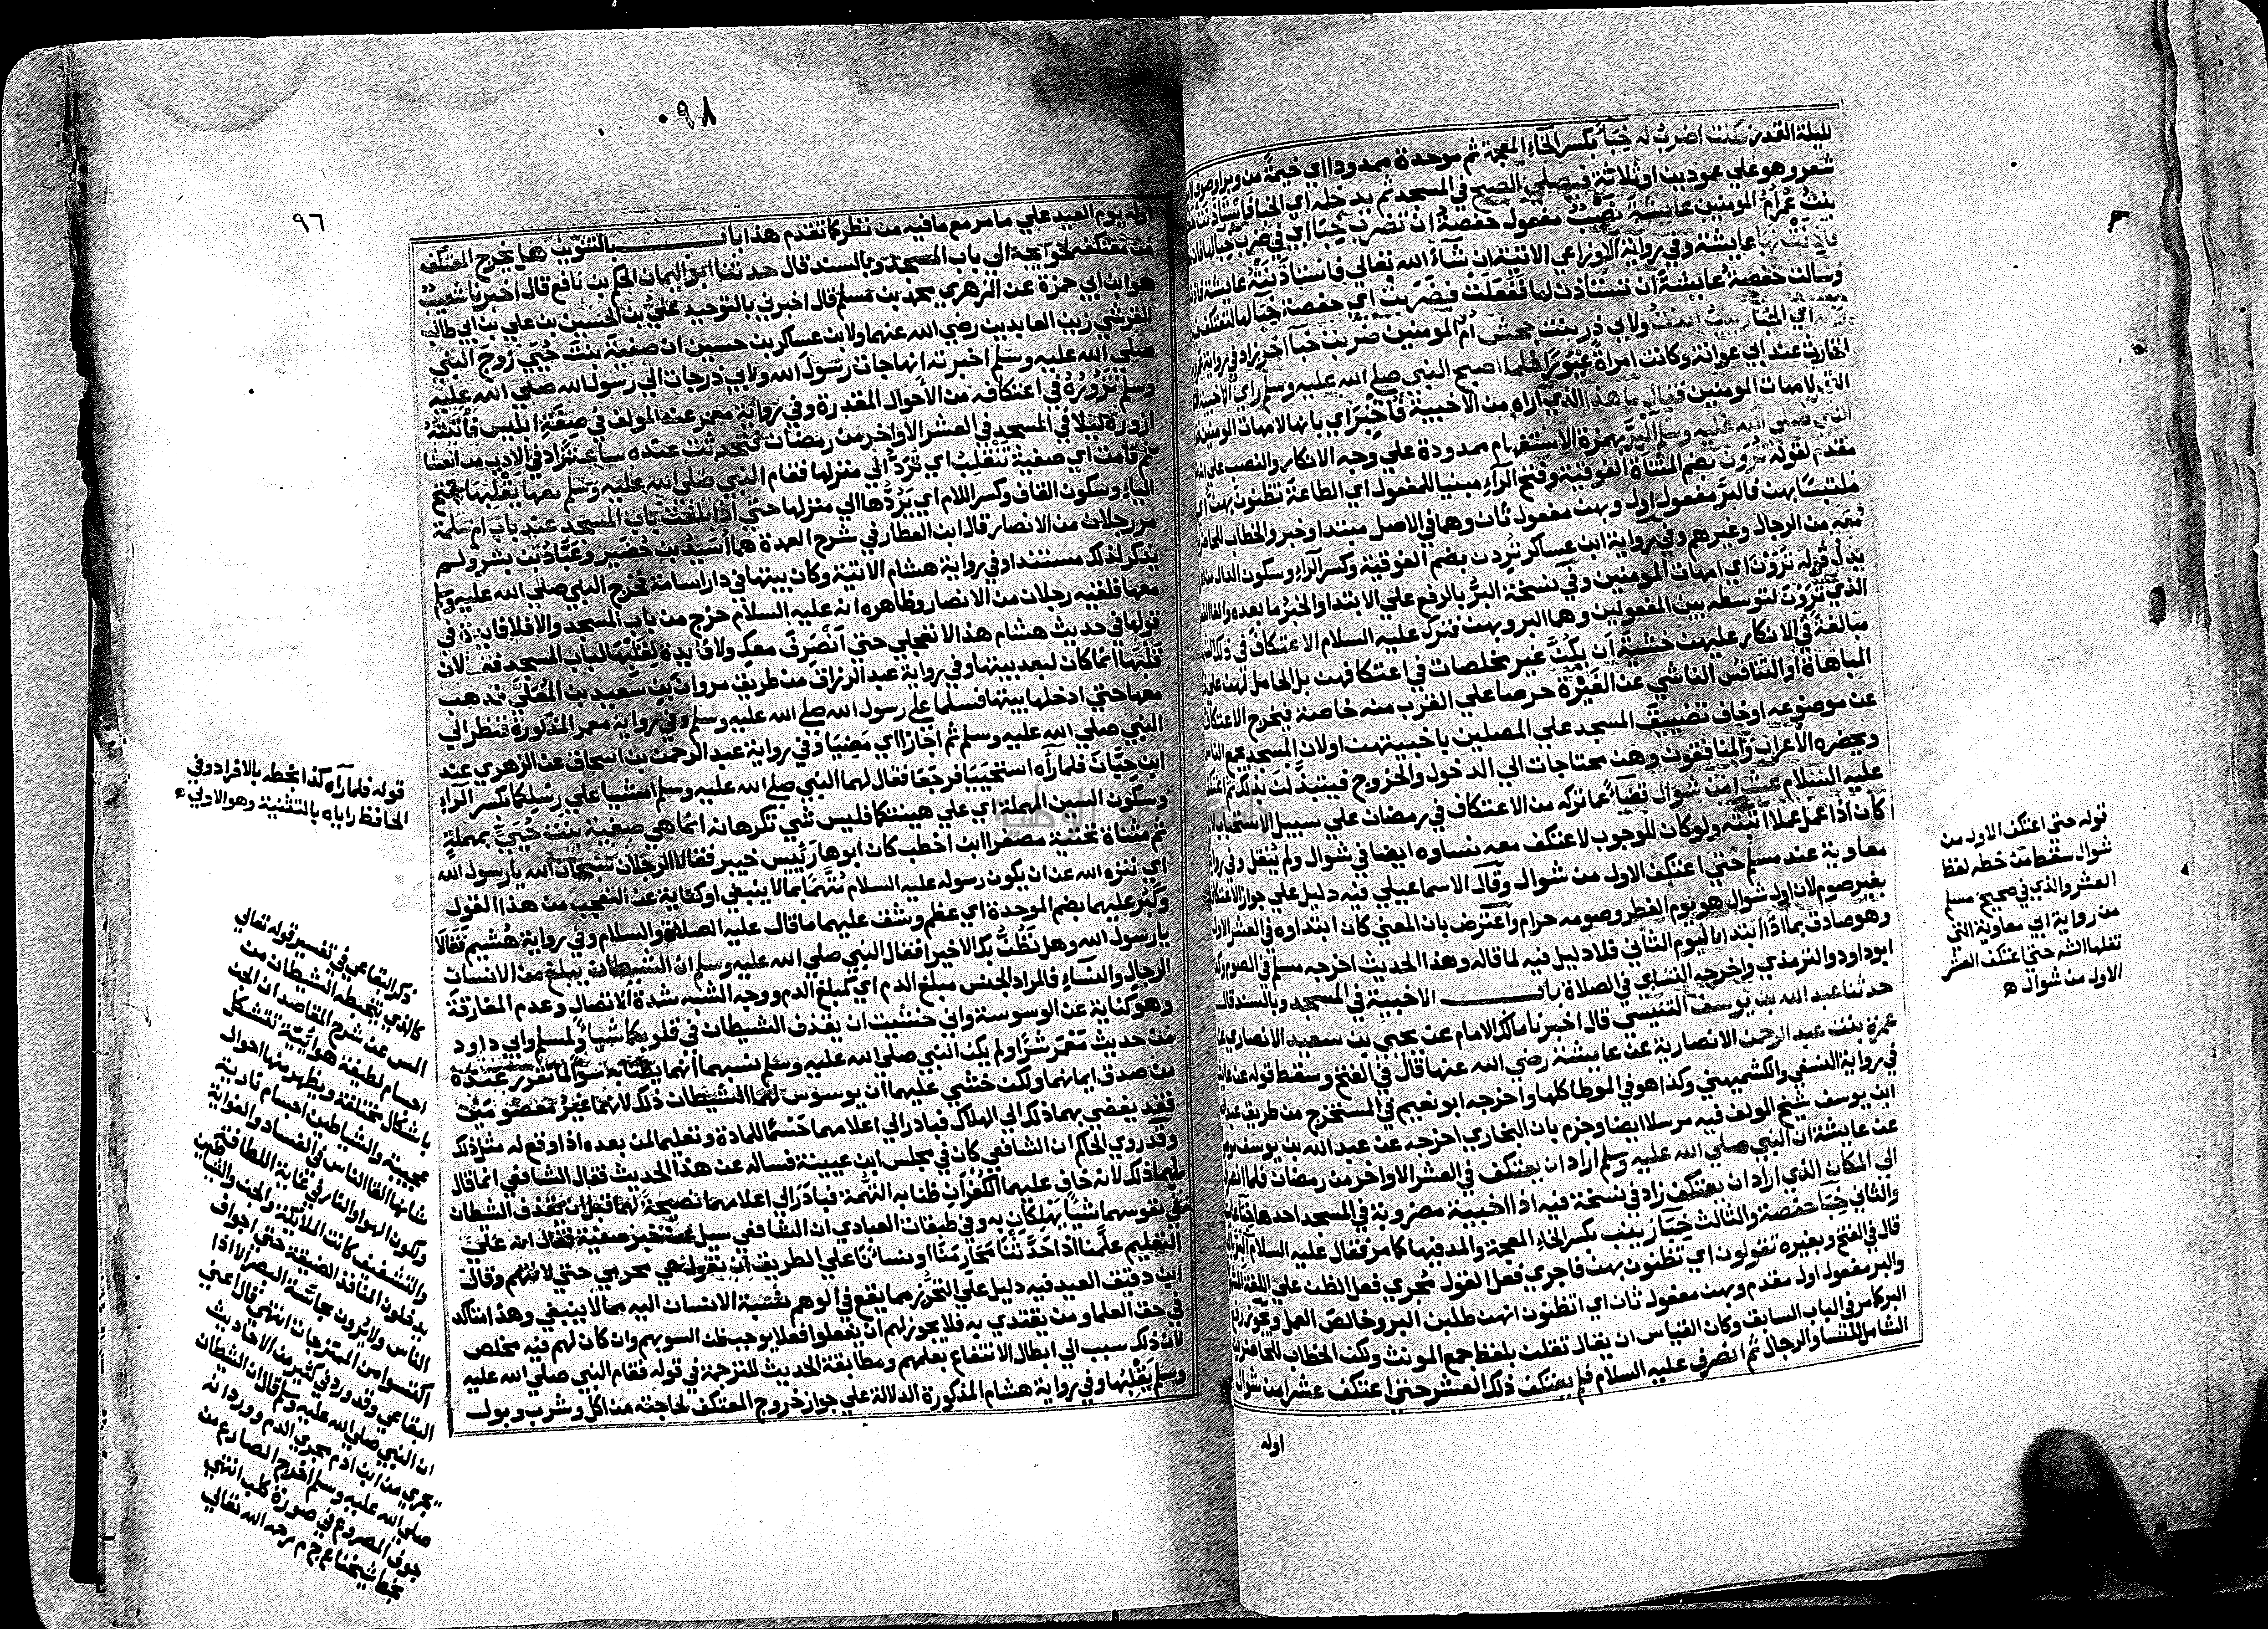 لليلة القدر فكنت اضرب له خباً بكسر الخاء المعجمة ثم موحدة ممدودا اي خيمة من وبر اوصوف
شعر وهو علي عمودين اوثلاثة فيصلي الصبح في المسجد ثم يدخله اي الخبا فاستاذنت
بنت عمر ام المومنين عايشة نصب مفعول حفصة ان تضرب خبا اي في ضرب خبا لها
فاذنت لها عايشة وفي رواية الاوزاعي الاتية ان شاء الله تعالي فاستاذنته عايشة
وسالت حفصة عايشة ان تستاذن لها ففعلت فضربت اي حفصة خبا لها لتعتكف
ولابي ذر بنت جحش ام المومنين ضربت خبا اخر زاد في رواية
الحارث عند ابي عوانة وكانت امراة غيورا فلما اصبح النبي صلي الله عليه وسلم راي الاخبية
التي لامهات المومنين فقال ما هذا الذي اراه من الاخبية فاخبر اي بانها لامهات المومنين
النبي صلي الله عليه وسلم البر بهمزة الاستفهام ممدودة علي وجه الانكار والنصب علي انه
مقدم لقوله ترون بضم المثناة الفوقية وفتح الراء مبنيا للمفعول اي الطاعة تظنون بهن
ملتبسا بهن فالبر مفعول اول وبهن مفعول ثان وهما في الاصل مبتدا وخبر والخطاب للحاضرين
معه من الرجال وغيرهم وفي رواية ابن عساكر تردن بضم الفوقية وكسر الراء وسكون الدال
بدل قوله ترون اي امهات المومنين وفي نسخة البر بالرفع علي الابتدا والخبر ما بعده
الذي ترون لتوسطه بين المفعولين وهما البر وبهن فترك عليه السلام الاعتكاف في ذلك
مبالغة في الانكار عليهن خشية ان يكن غير مخلصات في اعتكافهن بل الحامل لهن علي
المباهاة او التنافس الناشي عن الغيرة حرصا علي القرب منه خاصة فيخرج الاعتكاف
عن موضوعه اوخاف تضييق المسجد علي المصلين باخبيتهن اولان المسجد يجمع الناس
ويحضره الاعراب والمنافقون وهن محتاجات الي الدخول والخروج فيبتذلن بذلك ثم
عليه السلام عشرا من شوال قضاءً عما تركه من الاعتكاف في رمضان علي سبيل الاستحباب
كان اذا عمل عملا اثبته ولو كان للوجوب لاعتكف معه نساوه ايضا في شوال ولم ينقل وفي
معاوية عند مسلم حتي اعتكف الاول من شوال وقال الاسماعيلي فيه دليل علي جواز الاعتكاف
بغير صوم لان اول شوال هو يوم الفطر وصومه حرام واعترض بان المعني كان ابتداوه في العشر الاول
وهو صادق بما اذا ابتدا باليوم الثاني فلا دليل فيه لما قاله وهذا الحديث اخرجه مسلم في الصوم
ابوداود والترمذي واخرجه النساي في الصلاة باب الاخبية في المسجد وبالسند قال
حدثنا عبد الله بن يوسف التنيسي قال اخبرنا مالك الامام عن يحيي بن سعيد الانصاري
عمرة بنت عبد الرحمن الانصارية عن عايشة رضي الله عنها قال في الفتح وسقط قوله عن
في رواية النسفي والكشميهني وكذا هو في الموطا كلها واخرجه ابو نعيم في المستخرج من طريق
ابن يوسف شيخ المولف فيه مرسلا ايضا وجزم بان البخاري اخرجه عن عبد الله بن يوسف
عن عايشة ان النبي صلي الله عليه وسلم اراد ان يعتكف في العشر الاواخر من رمضان فلما
الي المكان الذي اراد ان يعتكف زاد في نسخة فيه اذا اخبية مضروبة في المسجد احدها
والثاني خبا حفصة والثالث خبا زينب بكسر الخاء المعجمة والمد فيها كما مر فقال عليه السلام
قال في الفتح وبغيره تقولون اي تظنون بهن فاجري فعل القول مجري فعل الظن علي اللغة
والبر مفعول اول مقدم وبهن مفعول ثان اي اتظنون انهن طلبن البر وخالص العمل ويجوز
البر كما مر في الباب السابق وكان القياس ان يقال تقلن بلفظ جمع المونث ولكن الخطاب للحاضرين
الشامل للنسا والرجال ثم انصرف عليه السلام فلم يعتكف ذلك العشر حتي اعتكف عشرا من شوال
اوله
قوله حتي اعتكف الاول من
شوال سقط من خطه لفظ
العشر والذي في صحيح مسلم
من رواية ابي معاوية التي
نقلها الشه حتي اعتكف العشر
الاول من شوال ه
٩٨
٩٦
اوله يوم العيد علي ما مر مع ما فيه من نظر كما تقدم هذا باب بالتنوين هل يخرج المعتكف
من معتكفه لحوايجه الي باب المسجد وبالسند قال حدثنا ابو اليمان الحكم بن نافع قال اخبرنا شعيب
هو ابن ابي حمزة عن الزهري محمد بن مسلم قال اخبرني بالتوحيد علي بن الحسين بن علي بن ابي طالب
القرشي زين العابدين رضي الله عنهما ولابن عساكر بن حسين ان صفية بنت حيي زوج النبي
صلي الله عليه وسلم اخبرته انها جات رسول الله ولابي ذر جات الي رسول الله صلي الله عليه
وسلم تزوره في اعتكافه من الاحوال المقدرة وفي رواية معمر عند المولف في صفة ابليس فاتيته
ازوره ليلا في المسجد في العشر الاواخر من رمضان فتحدثت عنده ساعة زاد في الادب من العشا
ثم قامت اي صفية تنقلب اي ترد الي منزلها فقام النبي صلي الله عليه وسلم معها يقلبها بفتح
الياء وسكون القاف وكسر اللام اي يردها الي منزلها حتي اذا بلغت باب المسجد عند باب ام سلمة
مر رجلان من الانصار قال ابن العطار في شرح العمدة هما أسيد بن حضير وعباد بن بشر ولم
يذكر لذلك مستندا وفي رواية هشام الاتية وكان بيتها في دار اسامة فخرج النبي صلي الله عليه وسلم
معها فلقيه رجلان من الانصار وظاهره انه عليه السلام خرج من باب المسجد والا فلا فايدة في
قولها في حديث هشام هذا لا تعجلي حتي أنصرف معك ولا فايدة لقلبها لباب المسجد فقط لان
قلبها انما كان لبعد بيتها وفي رواية عبد الرزاق من طريق مروان بن سعيد بن المعلي فذهب
معها حتي ادخلها بيتها فسلما علي رسول الله صلي الله عليه وسلم وفي رواية معمر المذكورة فنظر الي
النبي صلي الله عليه وسلم ثم اجازا اي مضيا وفي رواية عبد الرحمن بن اسحاق عن الزهري عند
ابن حبان فلما رآه استحييا فرجعا فقال لهما النبي صلي الله عليه وسلم امشيا علي رسلكما بكسر الراء
وسكون السين المهملة اي علي هينتكما فليس شي تكرهانه انما هي صفية بنت حيي بمهملة
ثم مثناة تحتية مصغرا ابن اخطب كان ابوها رييس خيبر فقالا الرجلان سبحان الله يا رسول الله
اي تنزه الله عن ان يكون رسوله عليه السلام متهما بما لا ينبغي اوكناية عن التعجب من هذا القول
وكبر عليهما بضم الموحدة اي عظم وشق عليهما ما قال عليه الصلاة والسلام وفي رواية هشيم فقالا
يا رسول الله وهل نظن بك الا خيرا فقال النبي صلي الله عليه وسلم ان الشيطان يبلغ من الانسان
الرجال والنساء فالمراد الجنس مبلغ الدم اي كمبلغ الدم ووجه الشبه شدة الاتصال وعدم المفارقة
وهو كناية عن الوسوسة واني خشيت ان يقذف الشيطان في قلوبكما شيا ولمسلم وابي داود
من حديث معمر شرا ولم يكن النبي صلي الله عليه وسلم نسبهما انهما يظنان به سوالما تقرر عنده
من صدق ايمانهما ولكن خشي عليهما ان يوسوس لهما الشيطان ذلك لانهما غير معصومين
فقد يفضي بهما ذلك الي الهلاك فبادر الي اعلامهما حسما للمادة وتعليما لمن بعده اذا وقع له مثل ذلك
وقد روي الحاكم ان الشافعي كان في مجلس ابن عيينة فساله عن هذا الحديث فقال الشافعي انما قال
لهما ذلك لانه خاف عليهما الكفر ان ظنا به التهمة فبادر الي اعلامهما نصيحة لهما قبل ان يقذف الشيطان
في نفوسهما شيا يهلكان به وفي طبقات العبادي ان الشافعي سيل عن خبر صفية فقال انه علي
التعليم علمنا اذا حدثنا محارمنا او نسائنا علي الطريق ان نقول هي محرمي حتي لا نتهم وقال
ابن دقيق العيد فيه دليل علي التحرز مما يقع في الوهم نسبة الانسان اليه مما لا ينبغي وهذا متاكد
في حق العلما ومن يقتدي به فلا يجوز لهم ان يفعلوا فعلا يوجب ظن السو بهم وان كان لهم فيه مخلص
لان ذلك سبب الي ابطال الانتفاع بعلمهم ومطابقة الحديث للترجمة في قوله فقام النبي صلي الله عليه
وسلم يقلبها وفي رواية هشام المذكورة الدلالة علي جواز خروج المعتكف لحاجته من اكل وشرب وبول
قوله فلما رآه كذا بخطه بالافراد وفي
الحافظ راياه بالتثنية وهو الاولي ه
ذكر البقاعي في تفسير قوله تعالي
كالذي يتخبطه الشيطان من
المس عن شرح المقاصد ان الجن
اجسام لطيفة هوائية تتشكل
باشكال مختلفة ويظهر منها احوال
عجيبة والشياطين اجسام نارية
شانها القا الناس في الفساد والغواية
ولكون الهوا والنار في غاية اللطافة
والتشفيف كانت الملائكة والجن والشياطين
يدخلون المنافذ الضيقة حتي اجواف
الناس ولا يرون بحاسة البصر الا اذا
اكتسوا من الممتزجات انتهي قال اعني
البقاعي وقد ورد في كثير من الاحاديث
ان النبي صلي الله عليه وسلم قال ان الشيطان
يجري من ابن ادم مجري الدم وورد انه
صلي الله عليه وسلم اخرج الصارع من
جوف المصروع في صورة كلب انتهي
بخط شيخنا ع ج م رحمه الله تعالي